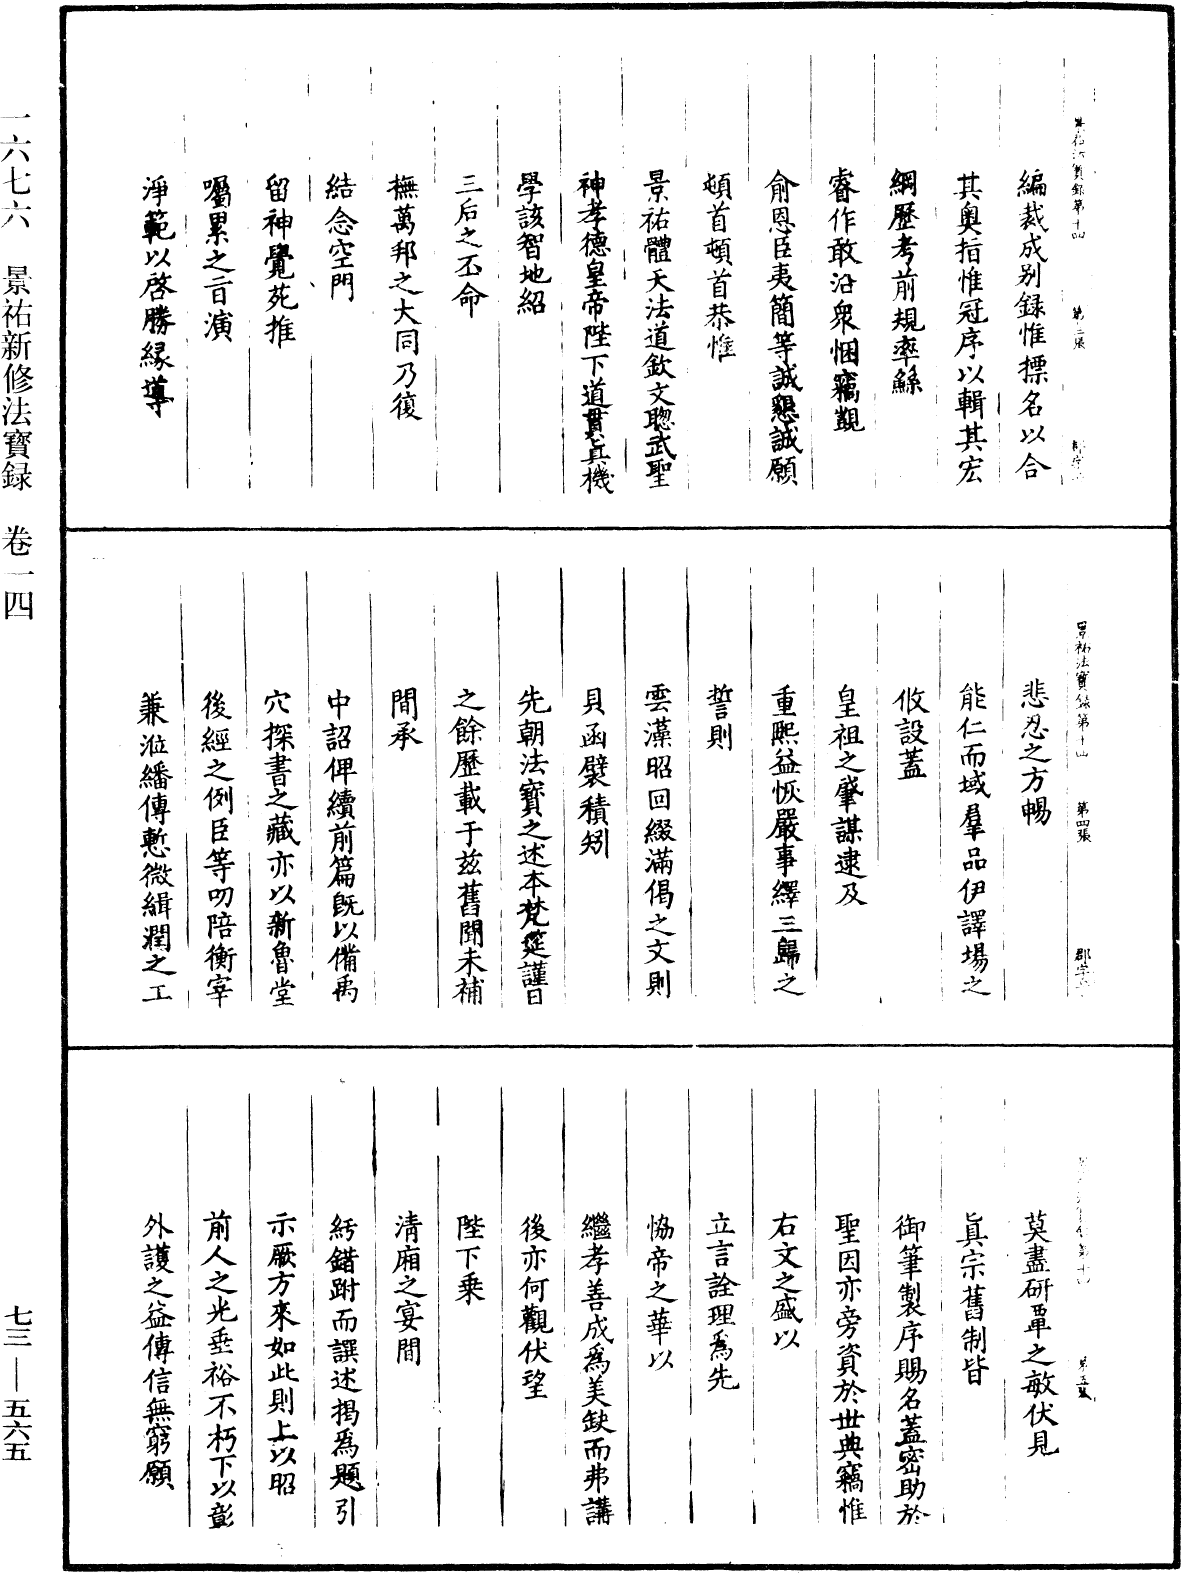 景祐法寶録第十四 第三張 郡字
編裁成别録惟摽名以合
其奥指惟冠序以輯其宏
綱歷考前規率繇
睿作敢沿衆悃竊覬
俞恩臣夷簡等誠懇誠願
頓首頓首恭惟
景祐體天法道欽文聦武聖
神孝德皇帝陛下道貫真機
學該智地紹
三后之丕命
撫萬邦之大同乃復
結念空門
留神覺苑推
囑累之旨演
淨範以啓勝縁導
景祐法寶録第十四 第四張 郡字
悲忍之方暢
能仁而域羣品伊譯場之
攸設蓋
皇祖之肇謀逮及
重熙益恢嚴事繹三歸之
誓則
雲漢昭回綴滿偈之文則
貝函襞積矧
先朝法寶之述本梵筵謹日
之餘歷載于兹舊聞未補
間承
中詔俾續前篇既以備禹
穴探書之藏亦以新魯堂
後經之例臣等叨陪衡宰
兼涖繙傳慙微緝潤之工
第五張
莫盡研覃之敏伏見
眞宗舊制皆
御筆製序賜名蓋密助於
聖因亦旁資於世典竊惟
右文之盛以
立言詮理爲先
恊帝之華以
繼孝善成爲美缺而弗講
後亦何觀伏望
陛下乗
清廂之宴間
紆錯跗而譔述揭爲題引
示厥方來如此則上以昭
前人之光垂裕不朽下以彰
外護之益傳信無窮願
一六七六 景祐新修法寶録 卷一四
七三—五六五